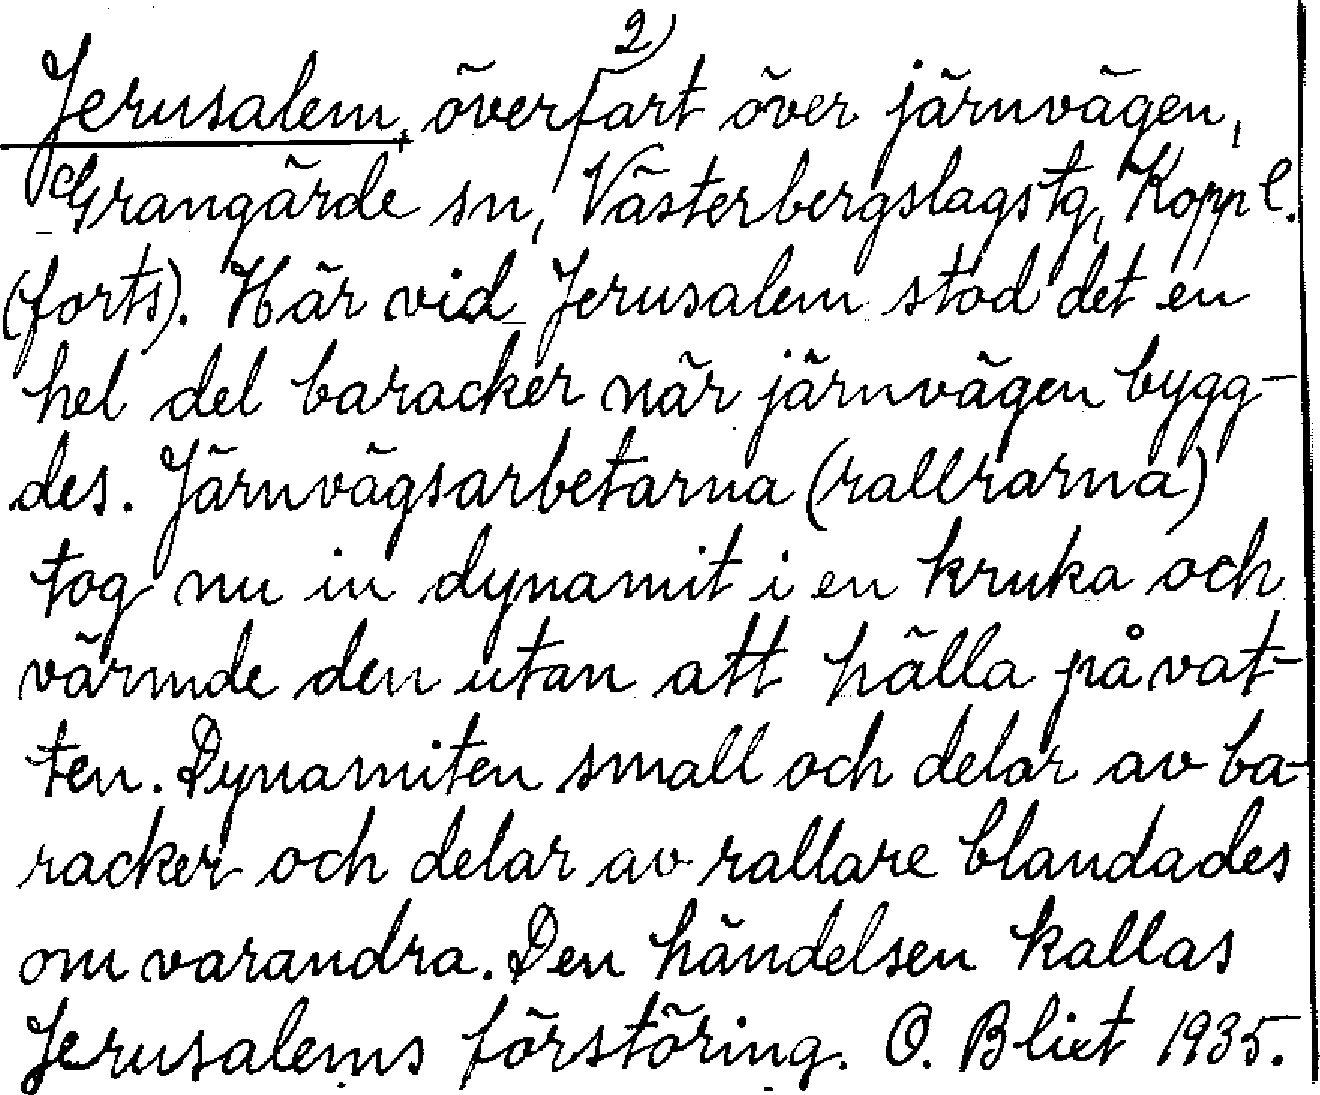 2)
Jerusalem, överfart över järnvägen,
Grangärde sn, Västerbergslags tg, Kopp l.
(forts). Här vid Jerusalem stod det en
hel del baracker när järnvägen bygg-
des. Järnvägsarbetarna (rallrarna)
tog nu in dynamit i en kruka och
värmde den utan att hälla på vat-
ten. Dynamiten small och delar av ba-
racker och delar av rallare blandades
om varandra. Den händelsen kallas
Jerusalems förstöring. O. Blixt 1935.